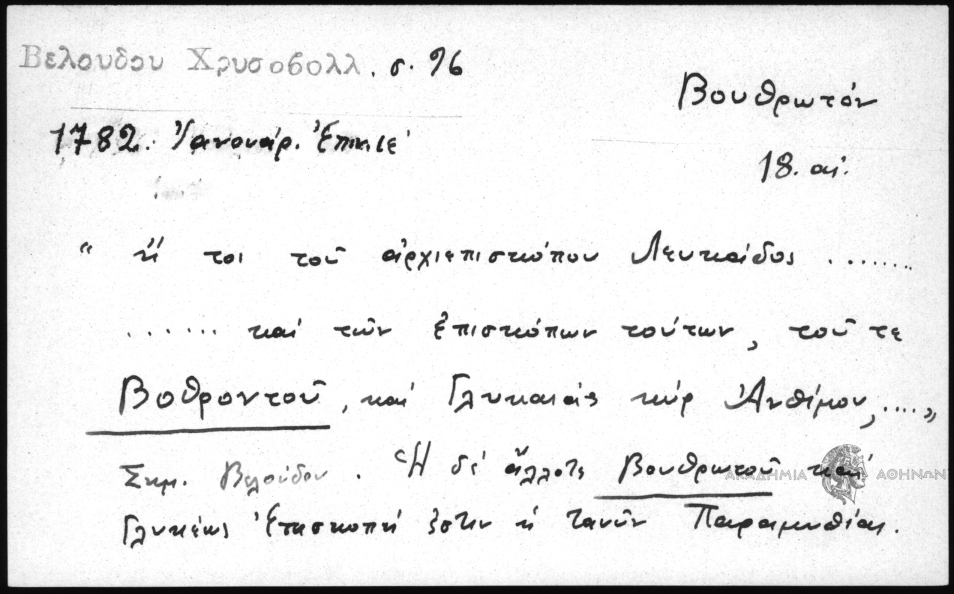 Βελουδου Χρυσοβολλ. σ. 96
Βουθρωτόν
1782. Ἰανουάρ. Ἐπιστέ
18. αἰ.
“ ἤ τοι τοῦ ἀρχιεπισκόπου Λευκάδος ........
...... καὶ τῶν ἐπισκόπων τούτων, τοῦ τε
Βοθροντοῦ, καὶ Γλυκαιάς κύρ Ἀνθίμου, ....„
Σημ. Βελούδου. Ἡ δέ ἄλλοτε Βουθρωτοῦ καί
Γλυκέως Ἐπισκοπή ἐστιν ἡ τανῦν Παραμυθίας.
ΑΚΑΔΗΜΙΑ ΑΘΗΝΩΝ